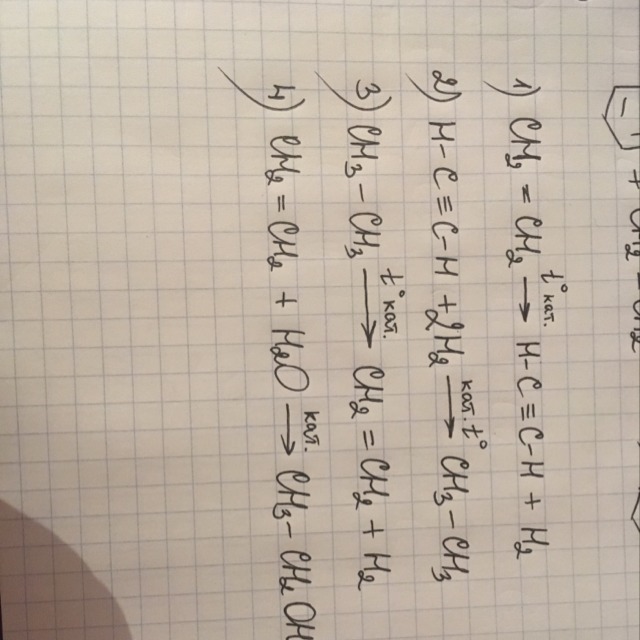 1) CH₂ = CH₂ —t° кат.→ H-C≡C-H + H₂
2) H-C≡C-H + 2H₂ —кат. t°→ CH₃-CH₃
3) CH₃-CH₃ —t° кат.→ CH₂ = CH₂ + H₂
4) CH₂ = CH₂ + H₂O —кат.→ CH₃-CH₂OH